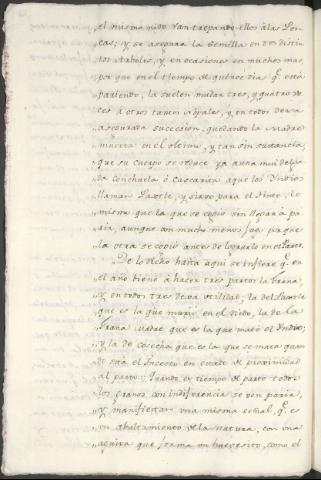 el mismo nido van trepando ellos àlas Pen
cas; y se asegura la semilla en dos distin
tos àrboles, y en ocasiones en muchos mas,
por que en el tiempo de quince dias qe. està
pariendo, la suelen mudar tres, y quatro ve
ces à otros tantos nòpales, y en todos dexa
asegurada succesion, quedando la Madre
muerta en el ultimo, y tan sin sustancia,
que su cuerpo se reduce ya a una mui delga
da conchuela ò Cascarita à que los Yndios
llaman Zacatle, y sirve para el tinte, lo
mismo que la que se cogiò sin llegar à pa
rir, aunque con mucho menos jugo, por que
la otra se cogiò antes de lograrlo en el Parto.
De lo dicho hasta aqui se infiere qe. en
el año viene à hacer tres partos la Grana,
y en todos tres dexa utilidad; la del Zacatle
que es la que muriò en el nido, la de la
Grana Madre que es la que matò el Yndio;
y la de cosecha que es la que se mata quan
do està el Insecto en estado de proximidad
al parto: Quando es tiempo de parto todos
los granos con indiferencia se ven parir,
y manifiestan una misma señal, qe. es
un abultamiento de la natura, con una
aguita que forma un huevesito, como el